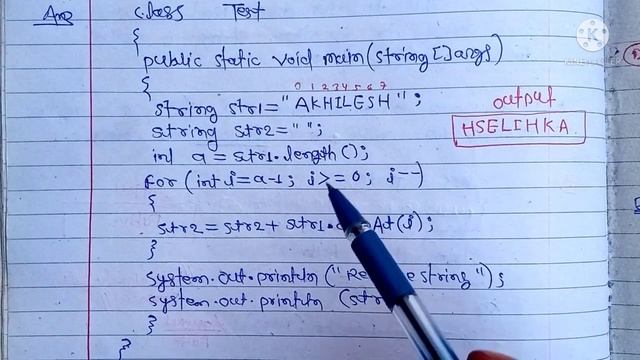 Ans class Test
{
public static void main(string[]args)
{
0 1 2 3 4 5 6 7
string str1="AKHILESH";
string str2="";
int a=str1.length();
for(int i=a-1; i>=0; i--)
{
str2=str2+str1. At(i);
}
system.out.println(" string");
system.out.println (str
}
}
output
HSELIHKA
K